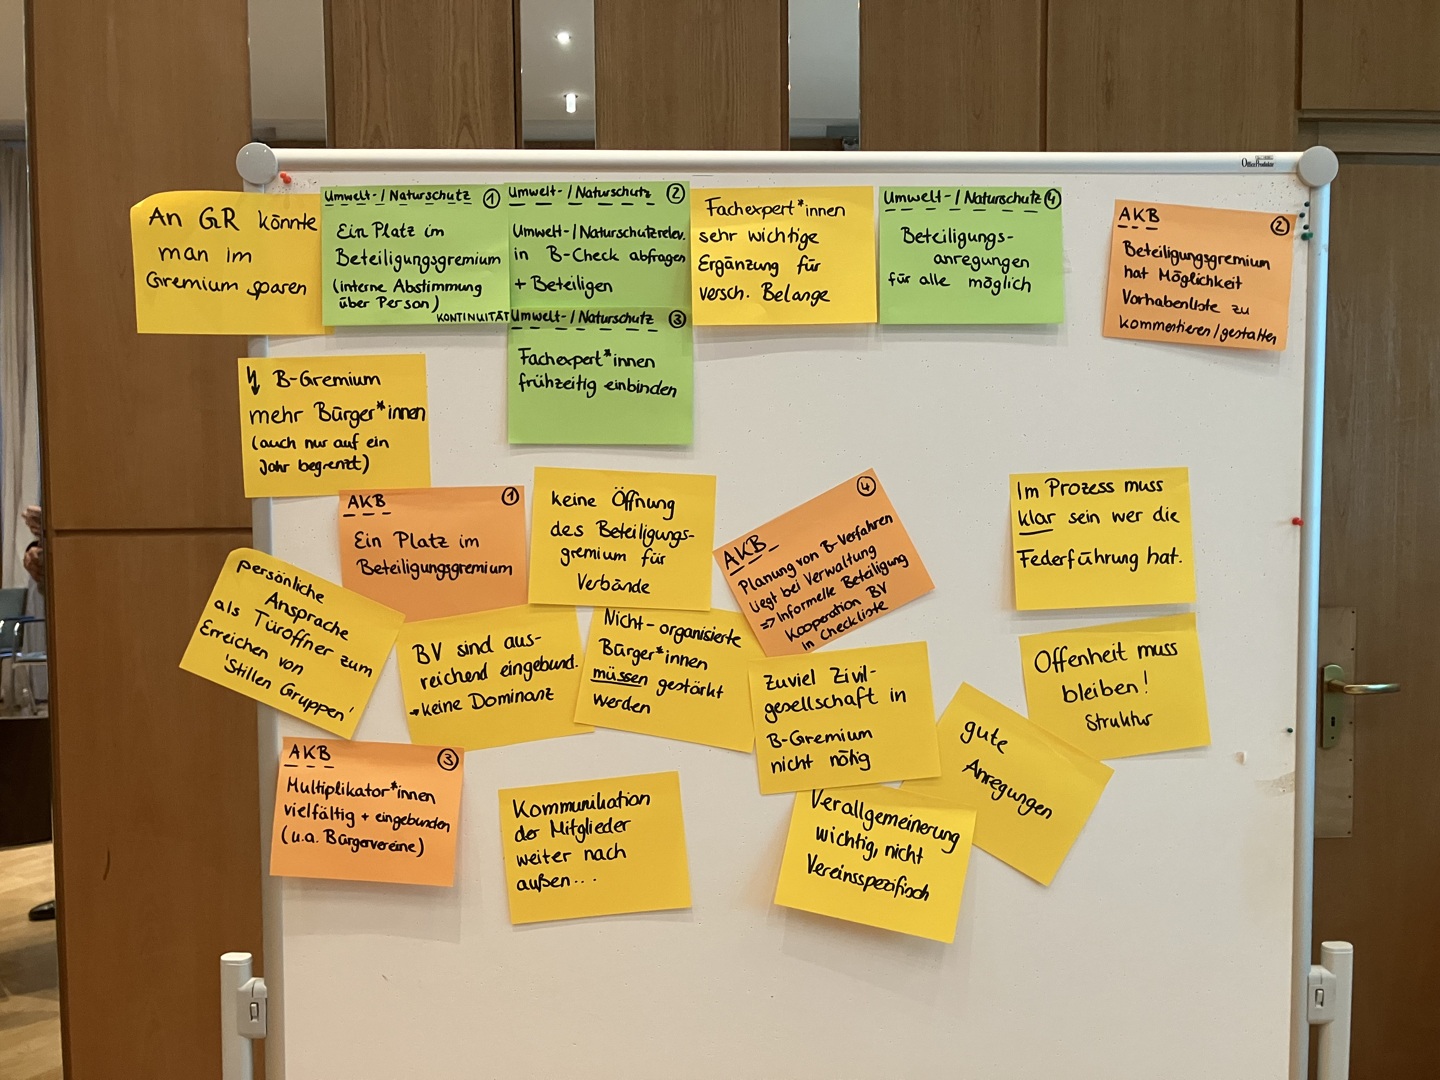 An GR könnte
man im
Gremium sparen
Umwelt-/Naturschutz ①
Ein Platz im
Beteiligungsgremium
(interne Abstimmung
über Person)
KONTINUITÄT
Umwelt-/Naturschutz ②
Umwelt-/Naturschutzrelev.
in B-Check abfragen
+ Beteiligen
Umwelt-/Naturschutz ③
Fachexpert*innen
frühzeitig einbinden
Fachexpert*innen
sehr wichtige
Ergänzung für
versch. Belange
Umwelt-/Naturschutz ④
Beteiligungs-
anregungen
für alle möglich
AKB ②
Beteiligungsgremium
hat Möglichkeit
Vorhabenliste zu
kommentieren/gestalten
B-Gremium
mehr Bürger*innen
(auch nur auf ein
Jahr begrenzt)
AKB ①
Ein Platz im
Beteiligungsgremium
keine Öffnung
des Beteiligungs-
gremium für
Verbände
AKB ④
Planung von B-Verfahren
liegt bei Verwaltung
=> Informelle Beteiligung
Kooperation BV
in Checkliste
Im Prozess muss
klar sein wer die
Federführung hat.
persönliche
Ansprache
als Türöffner zum
Erreichen von
'Stillen Gruppen'
BV sind aus-
reichend eingebund.
→keine Dominanz
Nicht-organisierte
Bürger*innen
müssen gestärkt
werden
zuviel Zivil-
gesellschaft in
B-Gremium
nicht nötig
Offenheit muss
bleiben!
Struktur
gute
Anregungen
AKB ③
Multiplikator*innen
vielfältig + eingebunden
(u.a. Bürgervereine)
Kommunikation
der Mitglieder
weiter nach
außen...
Verallgemeinerung
wichtig, nicht
Vereinsspezifisch